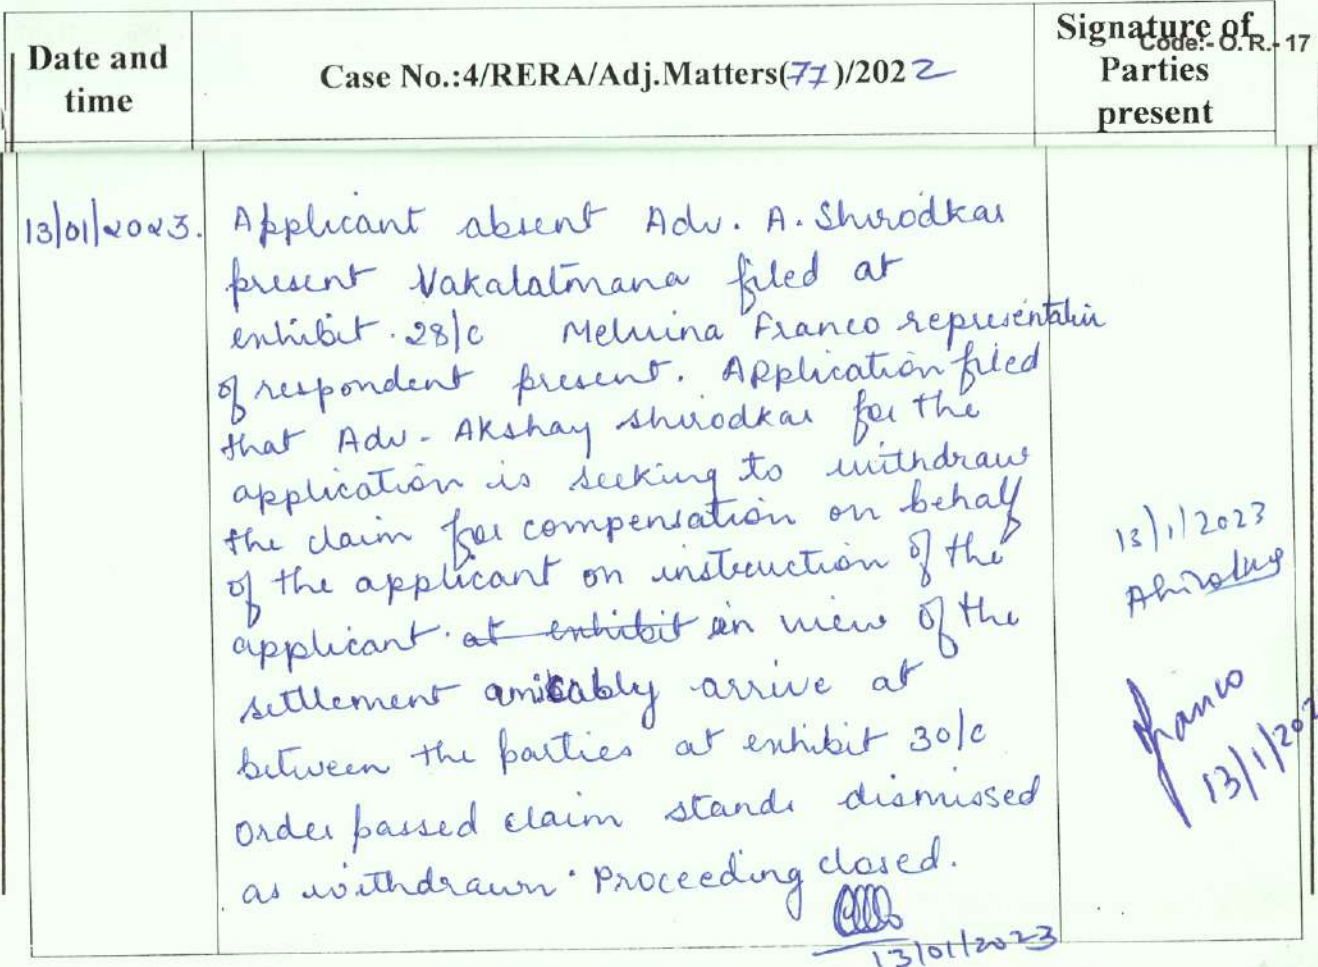 Code:- O. R.- 17
Date and time
Case No.:4/RERA/Adj.Matters(77)/2022
Signature of Parties present
13/01/2023.
Applicant absent Adv. A. Shirodkar
present Vakalatmana filed at
enhibit. 28/c Meluina Franco representative
of respondent present. Application filed
that Adv. Akshay Shirodkar for the
application is seeking to withdraw
the claim for compensation on behalf
of the applicant on instruction of the
applicant. at enhibit in view of the
settlement amicably arrive at
between the parties at enhibit 30/c
Order passed claim stands dismissed
as withdrawn. Proceeding closed.
13/01/2023
13/1/2023
Franco
13/1/202